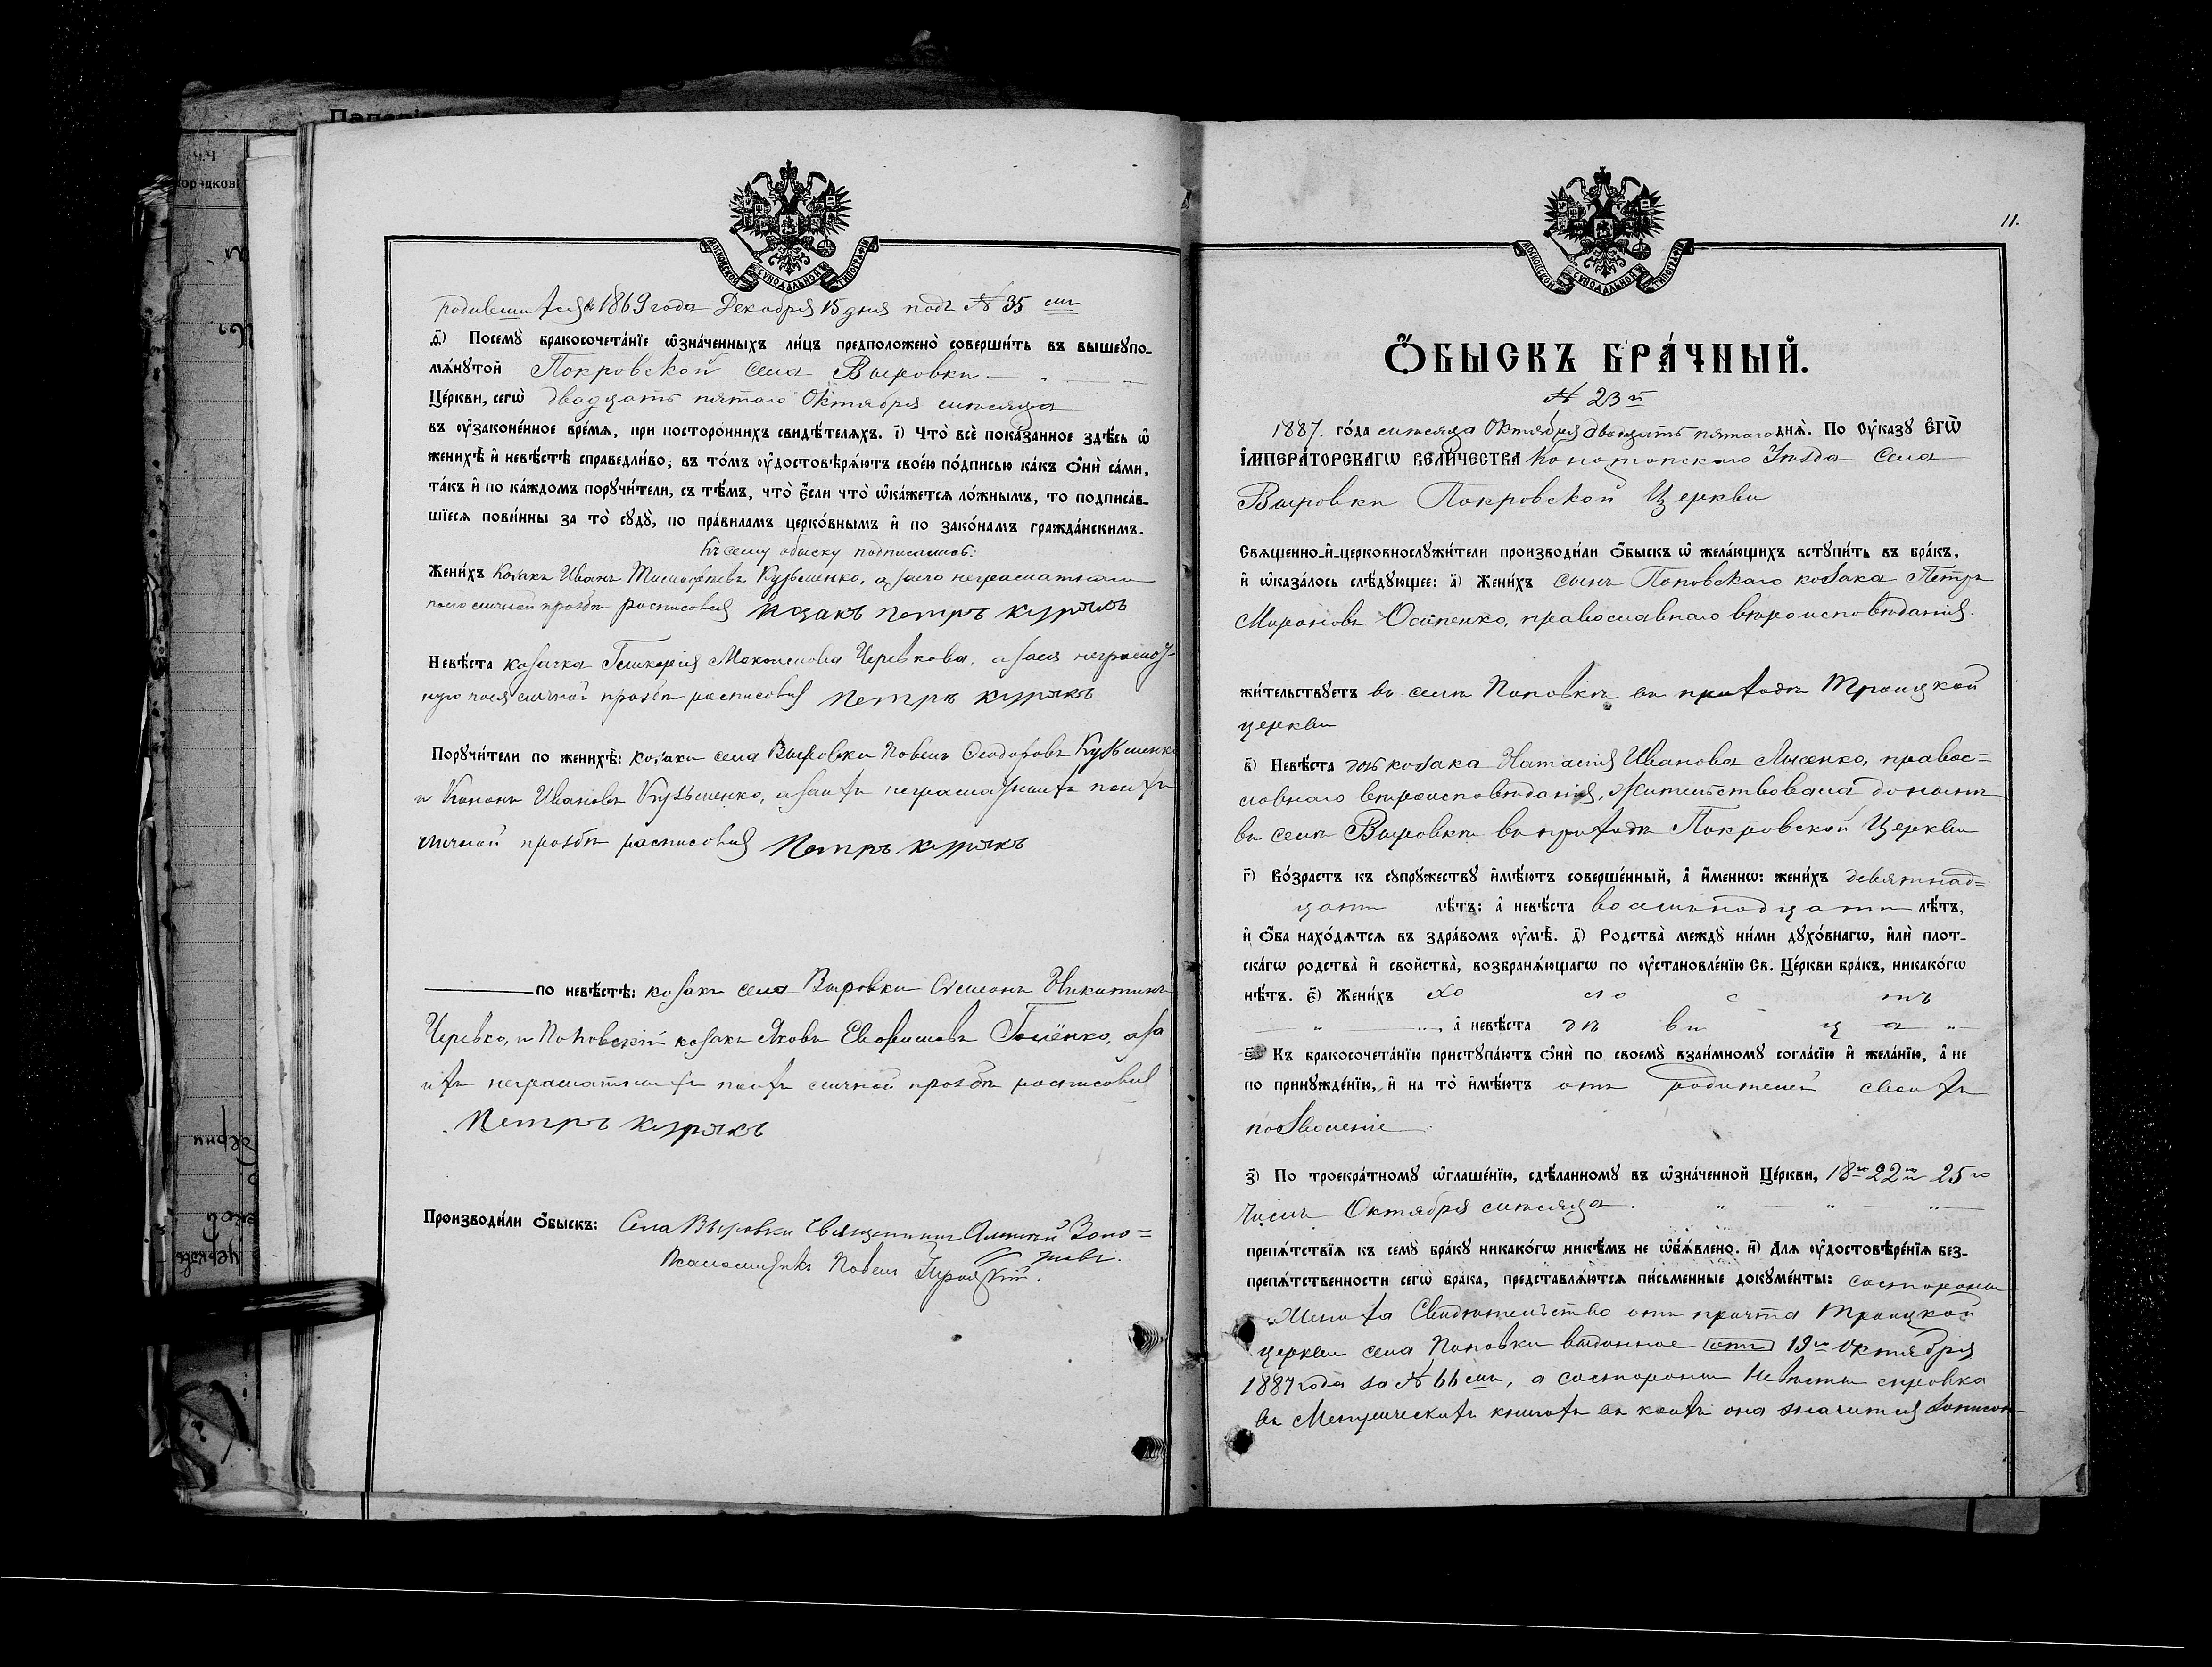 родившихся въ 1869 года Декабря 15 дня подъ № 35 емъ
д҃і) Посемꙋ̀ бракосочета́нїе ѡ҆зна́ченныхъ ли́цъ предположено̀ соверши́ть въ вышеꙋпо-
мѧ́нꙋтой Покровской села Вировки
Це́ркви, сегѡ̀ двадцать пятаго Октября мѣсяца
въ ᲂу҆законе́нное вре́мѧ, при посторо́ннихъ свидѣ́телѧхъ. і҃) Что̀ всѐ пока́занное здѣ́сь ѡ҆
женихѣ̀ и҆ невѣ́стѣ справедли́во, въ то́мъ ᲂу҆достовѣрѧ́ютъ свое́ю по́дписью ка́къ ѻ҆нѝ са́ми,
та́къ и҆ по ка́ждомъ порꙋчи́тели, съ тѣ́мъ, что̀ є҆́сли что̀ ѡ҆ка́жетсѧ ло́жнымъ, то подписа́в-
шїесѧ пови́нны за то̀ сꙋдꙋ̀, по пра́виламъ церко́внымъ и҆ по зако́намъ гражда́нскимъ.
Къ сему обыску подписались:
Жени́хъ Козакъ Иванъ Тимофеевъ Кузьменко, а за него неграматнаго
по его личной прозбѣ росписовся козакъ петръ курякъ
Невѣ́ста козачка Гликерія Черевкова, а за нея неграмот-
ную по ея личной прозбѣ росписовся Петръ курякъ
Порꙋчи́тели по женихѣ̀: козаки села Вировки Павелъ Феодоровъ Кузьменко
и Кононъ Ивановъ Кузьменко, а за нихъ неграматныхъ по ихъ
личной прозбѣ росписовся Петръ курякъ
по невѣ́стѣ: козакъ села Вировки Симеонъ Никитинъ
Черевко, и Поповскій козакъ Яковъ а за
ихъ неграматныхъ по ихъ личной прозбѣ росписовся
Петръ курякъ
Производи́ли ѻ҆́быскъ: Села Вировки Священникъ
Псаломщикъ Павелъ
11.
Ѻ҆́БЫСКЪ БРА́ЧНЫЙ.
№ 23 й
1887 го́да мѣсяца Октября двадцать пятаго днѧ̀. По ᲂу҆ка́зꙋ Є҆ГѠ̀
І҆МПЕРА́ТОРСКАГѠ ВЕЛИ́ЧЕСТВА Конотопскаго Уѣзда Села
Вировки Покровской Церкви
Свѧще́нно-и҆-церковнослꙋжи́тели производи́ли ѻ҆́быскъ ѡ҆ жела́ющихъ встꙋпи́ть въ бра́къ,
и҆ ѡ҆каза́лось слѣ́дꙋющее: а҃) Жени́хъ сынъ Поповскаго козака Петръ
Мироновъ Осипенко, православнаго вѣроисповѣданія.
жи́тельствꙋетъ въ селѣ Поповкѣ въ приходѣ Троицкой
церкви
в҃) Невѣ́ста дочь козака Наталія Иванова Лысенко, правос=
лавнаго вѣроисповѣданія, жительствовала донынѣ
въ селѣ Вировкѣ въ приходѣ Покровской Церкви
г҃) Во́зрастъ къ сꙋпрꙋ́жествꙋ и҆мѣ́ютъ соверше́нный, а҆ и҆́меннѡ: жени́хъ девятнад=
цати лѣ́тъ: а҆ невѣ́ста восемнадцати лѣ́тъ,
и҆ ѻ҆́ба нахо́дѧтсѧ въ здра́вомъ ᲂу҆мѣ̀. д҃) Родства̀ междꙋ̀ ни́ми дꙋхо́внагѡ, и҆лѝ плот-
ска́гѡ родства̀ и҆ сво́йства, возбранѧ́ющагѡ по ᲂу҆становле́нїю Св. Це́ркви бра́къ, никако́гѡ
нѣ́тъ. є҃) Жени́хъ хо ло с тъ
а҆ невѣ́ста дѣ ви ц а
ѕ҃) Къ бракосочета́нїю пристꙋпа́ютъ ѻ҆нѝ по своемꙋ̀ взаи́мномꙋ согла́сїю и҆ жела́нїю, а҆ не
по принꙋжде́нїю, и҆ на то̀ и҆мѣ́ютъ отъ родителей своихъ
позволеніе
з҃) По троекра́тномꙋ ѡ҆глаше́нїю, сдѣ́ланномꙋ въ ѡ҆зна́ченной Це́ркви, 18го 22го и 25го
числъ Октября мѣсяца
препѧ́тствїѧ къ семꙋ̀ бра́кꙋ никако́гѡ никѣ́мъ не ѡ҆б̾ѧ́влено. и҃) Для ᲂу҆достовѣре́нїѧ без-
препѧ́тственности сегѡ̀ бра́ка, представлѧ́ютсѧ пи́сьменные докꙋме́нты: состороны
Жениха Свидѣтельство отъ причта Троицкой
церкви села Поповки выданное отъ 19го Октября
1887 года за № 66 емъ, а состороны Невѣсты справка
въ Метрическихъ книгахъ въ коихъ она значится записан-